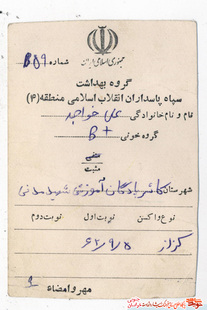 جمهوری اسلامی ایران
شماره ۸۵۹
گروه بهداشت
سپاه پاسداران انقلاب اسلامی منطقه (۴)
نام و نام خانوادگی: علی خواجه
گروه خونی: B+
منفی
مثبت
شهرستان پادگان آموزشی شهید مدنی
نوع واکسن نوبت اول نوبت دوم
کزاز ۶۲/۹/۵
مهر و امضاء